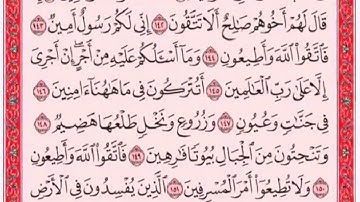 قَالَ لَهُمْ أَخُوهُمْ صَٰلِحٌ أَلَا تَتَّقُونَ ١٤٢ إِنِّى لَكُمْ رَسُولٌ أَمِينٌ ١٤٣
فَٱتَّقُوا۟ ٱللَّهَ وَأَطِيعُونِ ١٤٤ وَمَآ أَسْـَٔلُكُمْ عَلَيْهِ مِنْ أَجْرٍ إِنْ أَجْرِىَ
إِلَّا عَلَىٰ رَبِّ ٱلْعَٰلَمِينَ ١٤٥ أَتُتْرَكُونَ فِى مَا هَٰهُنَآ ءَامِنِينَ ١٤٦
فِى جَنَّٰتٍ وَعُيُونٍ ١٤٧ وَزُرُوعٍ وَنَخْلٍ طَلْعُهَا هَضِيمٌ ١٤٨
وَتَنْحِتُونَ مِنَ ٱلْجِبَالِ بُيُوتًا فَٰرِهِينَ ١٤٩ فَٱتَّقُوا۟ ٱللَّهَ وَأَطِيعُونِ
١٥٠ وَلَا تُطِيعُوٓا۟ أَمْرَ ٱلْمُسْرِفِينَ ١٥١ ٱلَّذِينَ يُفْسِدُونَ فِى ٱلْأَرْضِ